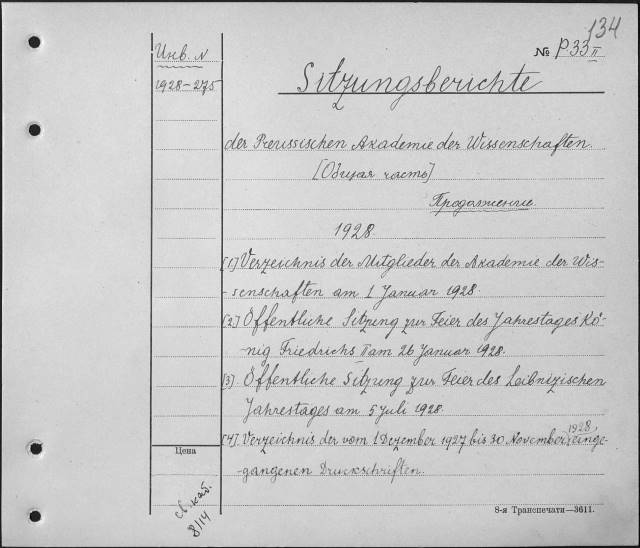 134
№ P33 II
Инв. N
1928-275
Sitzungsberichte
der Preussischen Akademie der Wissenschaften.
[Общая часть]
Продолжение.
1928
[1] Verzeichnis der Mitglieder der Akademie der Wis-
-senschaften am 1 Januar 1928.
[2] Öffentliche Sitzung zur Feier des Jahrestages Kö-
-nig Friedrichs II am 26 Januar 1928.
[3] Öffentliche Sitzung zur Feier des Leibnizischen
Jahrestages am 5 Juli 1928.
[4] Verzeichnis der vom 1 Dezember 1927 bis 30 November 1928, einge-
-gangenen Druckschriften.
Цена
св. каб.
8/14
8-я Транспечати—3611.